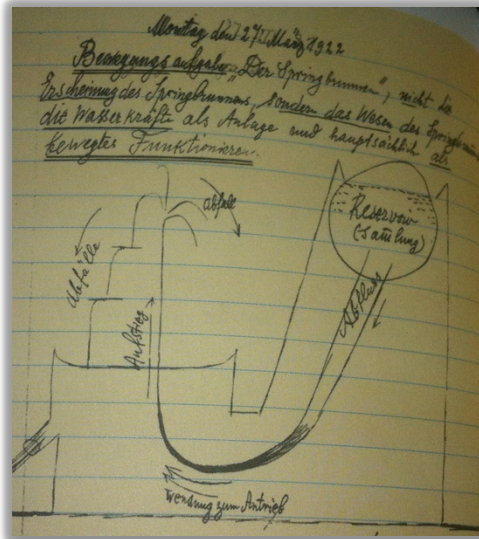 Montag den 27. März 1922
Bewegungsaufgabe: "Der Springbrunnen", nicht die
Erscheinung des Springbrunnens, sondern das Wesen des
die Wasserkräfte als Anlage und hauptsächlich als
bewegtes Funktionieren.
abfall
Reservoir
(Samlung)
Abfälle
Aufstieg
Abfluss
Wendung zum Antrieb